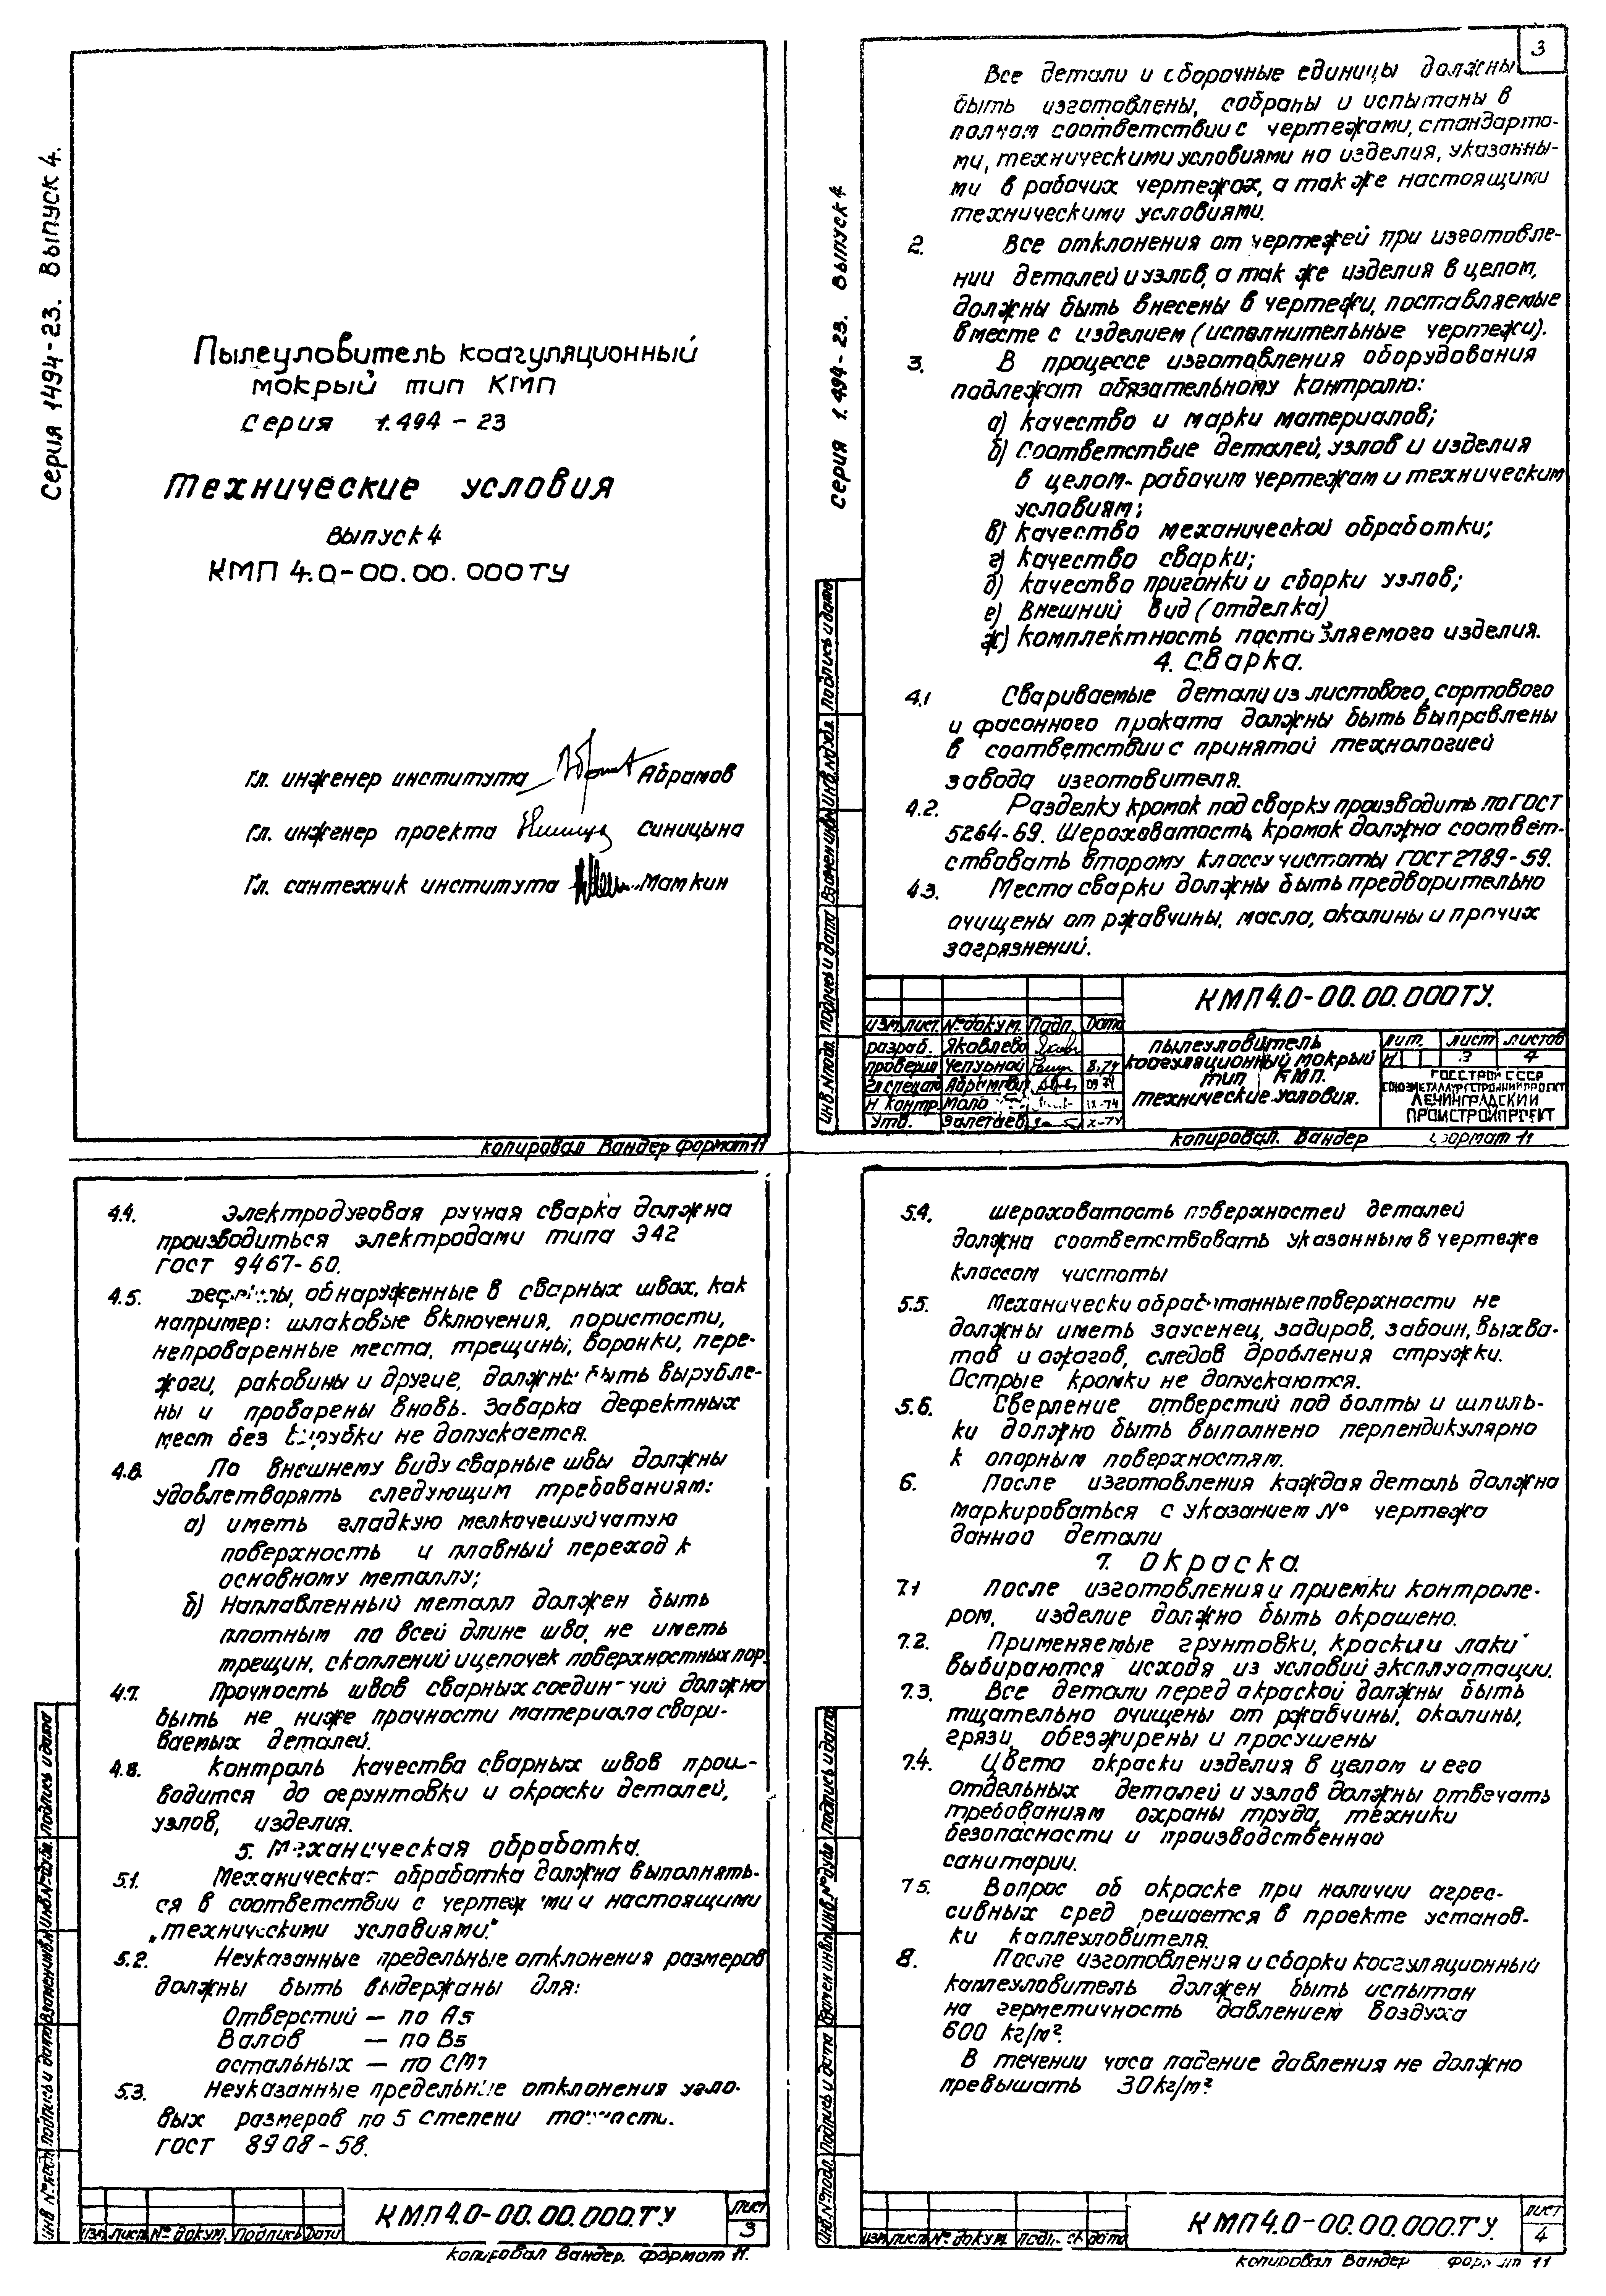 Серия 1494-23. Выпуск 4.
Пылеуловитель коагуляционный
мокрый тип КМП
серия 1.494-23
Технические условия
выпуск 4
КМП 4.0-00.00.000ТУ
Гл. инженер института Абрамов
Гл. инженер проекта Синицына
Гл. сантехник института Мамкин
копировал Вандер формат 11
3
серия 1.494-23. выпуск 4
Все детали и сборочные единицы должны
быть изготовлены, собраны и испытаны в
полном соответствии с чертежами, стандарта-
ми, техническими условиями на изделия, указанны-
ми в рабочих чертежах, а так же настоящими
техническими условиями.
2. Все отклонения от чертежей при изготовле-
нии деталей и узлов, а так же изделия в целом,
должны быть внесены в чертежи, поставляемые
вместе с изделием (исполнительные чертежи).
3. В процессе изготовления оборудования
подлежат обязательному контролю:
а) качество и марки материалов;
б) соответствие деталей, узлов и изделия
в целом- рабочим чертежам и техническим
условиям;
в) качество механической обработки;
г) качество сварки;
д) качество пригонки и сборки узлов;
е) внешний вид (отделка)
ж) комплектность поставляемого изделия.
4. Сварка.
4.1 Свариваемые детали из листового, сортового
и фасонного проката должны быть выправлены
в соответствии с принятой технологией
завода изготовителя.
4.2. Разделку кромок под сварку производить по ГОСТ
5264-69. Шероховатость кромок должна соответ-
ствовать второму классу чистоты ГОСТ 2789-59.
4.3. Места сварки должны быть предварительно
очищены от ржавчины, масла, окалины и прочих
загрязнений.
инв. N подл. подпись и дата Взамен инв. инв. N дубл. подпись и дата
КМП 4.0-00.00.000ТУ.
изм. лист. № докум. Подп. Дата
разраб. Яковлева
проверил Чепурной 8.74
Гл. специал 09 74
Н контр. IX-74
утв. Залетаев X-74
пылеуловитель
коагуляционный мокрый
тип КМП.
технические условия.
лит. лист листов
И 3 4
ГОССТРОЙ СССР
СОЮЗМЕТАЛЛУРГСТРОЙНИИПРОЕКТ
ЛЕНИНГРАДСКИЙ
ПРОМСТРОЙПРОЕКТ
копировал. Вандер формат 11
4.4. Электродуговая ручная сварка должна
производиться электродами типа Э42
ГОСТ 9467-60.
4.5. Дефекты, обнаруженные в сварных швах, как
например: шлаковые включения, пористости,
непроваренные места, трещины, воронки, пере-
жоги, раковины и другие, должны быть вырубле-
ны и проварены вновь. Заварка дефектных
мест без вырубки не допускается.
4.6. По внешнему виду сварные швы должны
удовлетворять следующим требованиям:
а) иметь гладкую мелкочешуйчатую
поверхность и плавный переход к
основному металлу;
б) Наплавленный металл должен быть
плотным по всей длине шва, не иметь
трещин, скоплений и цепочек поверхностных пор.
4.7. Прочность швов сварных соединений должна
быть не ниже прочности материала свари-
ваемых деталей.
4.8. Контроль качества сварных швов произ-
водится до огрунтовки и окраски деталей,
узлов, изделия.
5. Механическая обработка.
5.1. Механическая обработка должна выполнять-
ся в соответствии с чертежами и настоящими
„техническими условиями"
5.2. Неуказанные предельные отклонения размеров
должны быть выдержаны для:
Отверстий — по А5
Валов — по В5
остальных — по СМ7
5.3. Неуказанные предельные отклонения угло-
вых размеров по 5 степени точности.
ГОСТ 8908-58.
инв. № подл. подпись и дата Взамен инв. N инв. N дубл. подпись и дата
КМП 4.0-00.00.000.ТУ
изм лист № докум. Подпись Дата
лист
3
копировал Вандер. формат 11.
5.4. Шероховатость поверхностей деталей
должна соответствовать указанным в чертеже
классом чистоты
5.5. Механически обработанные поверхности не
должны иметь заусенец, задиров, забоин, выхва-
тов и ожогов, следов дробления стружки.
Острые кромки не допускаются.
5.6. Сверление отверстий под болты и шпиль-
ки должно быть выполнено перпендикулярно
к опорным поверхностям.
6. После изготовления каждая деталь должна
маркироваться с указанием № чертежа
данной детали
7. Окраска.
7.1 После изготовления и приемки контроле-
ром, изделие должно быть окрашено.
7.2. Применяемые грунтовки, краски и лаки
выбираются исходя из условий эксплуатации.
7.3. Все детали перед окраской должны быть
тщательно очищены от ржавчины, окалины,
грязи, обезжирены и просушены
7.4. Цвета окраски изделия в целом и его
отдельных деталей и узлов должны отвечать
требованиям охраны труда, техники
безопасности и производственной
санитарии.
7.5. Вопрос об окраске при наличии агрес-
сивных сред решается в проекте установ-
ки каплеуловителя.
8. После изготовления и сборки коагуляционный
каплеуловитель должен быть испытан
на герметичность давлением воздуха
600 кг/м².
В течении часа падение давления не должно
превышать 30 кг/м²
инв. N подл. подпись и дата Взамен инв. N инв. № дубл. подпись и дата
КМП 4.0-00.00.000.ТУ.
изм лист № докум. подпись дата
лист
4
копировал Вандер формат 11